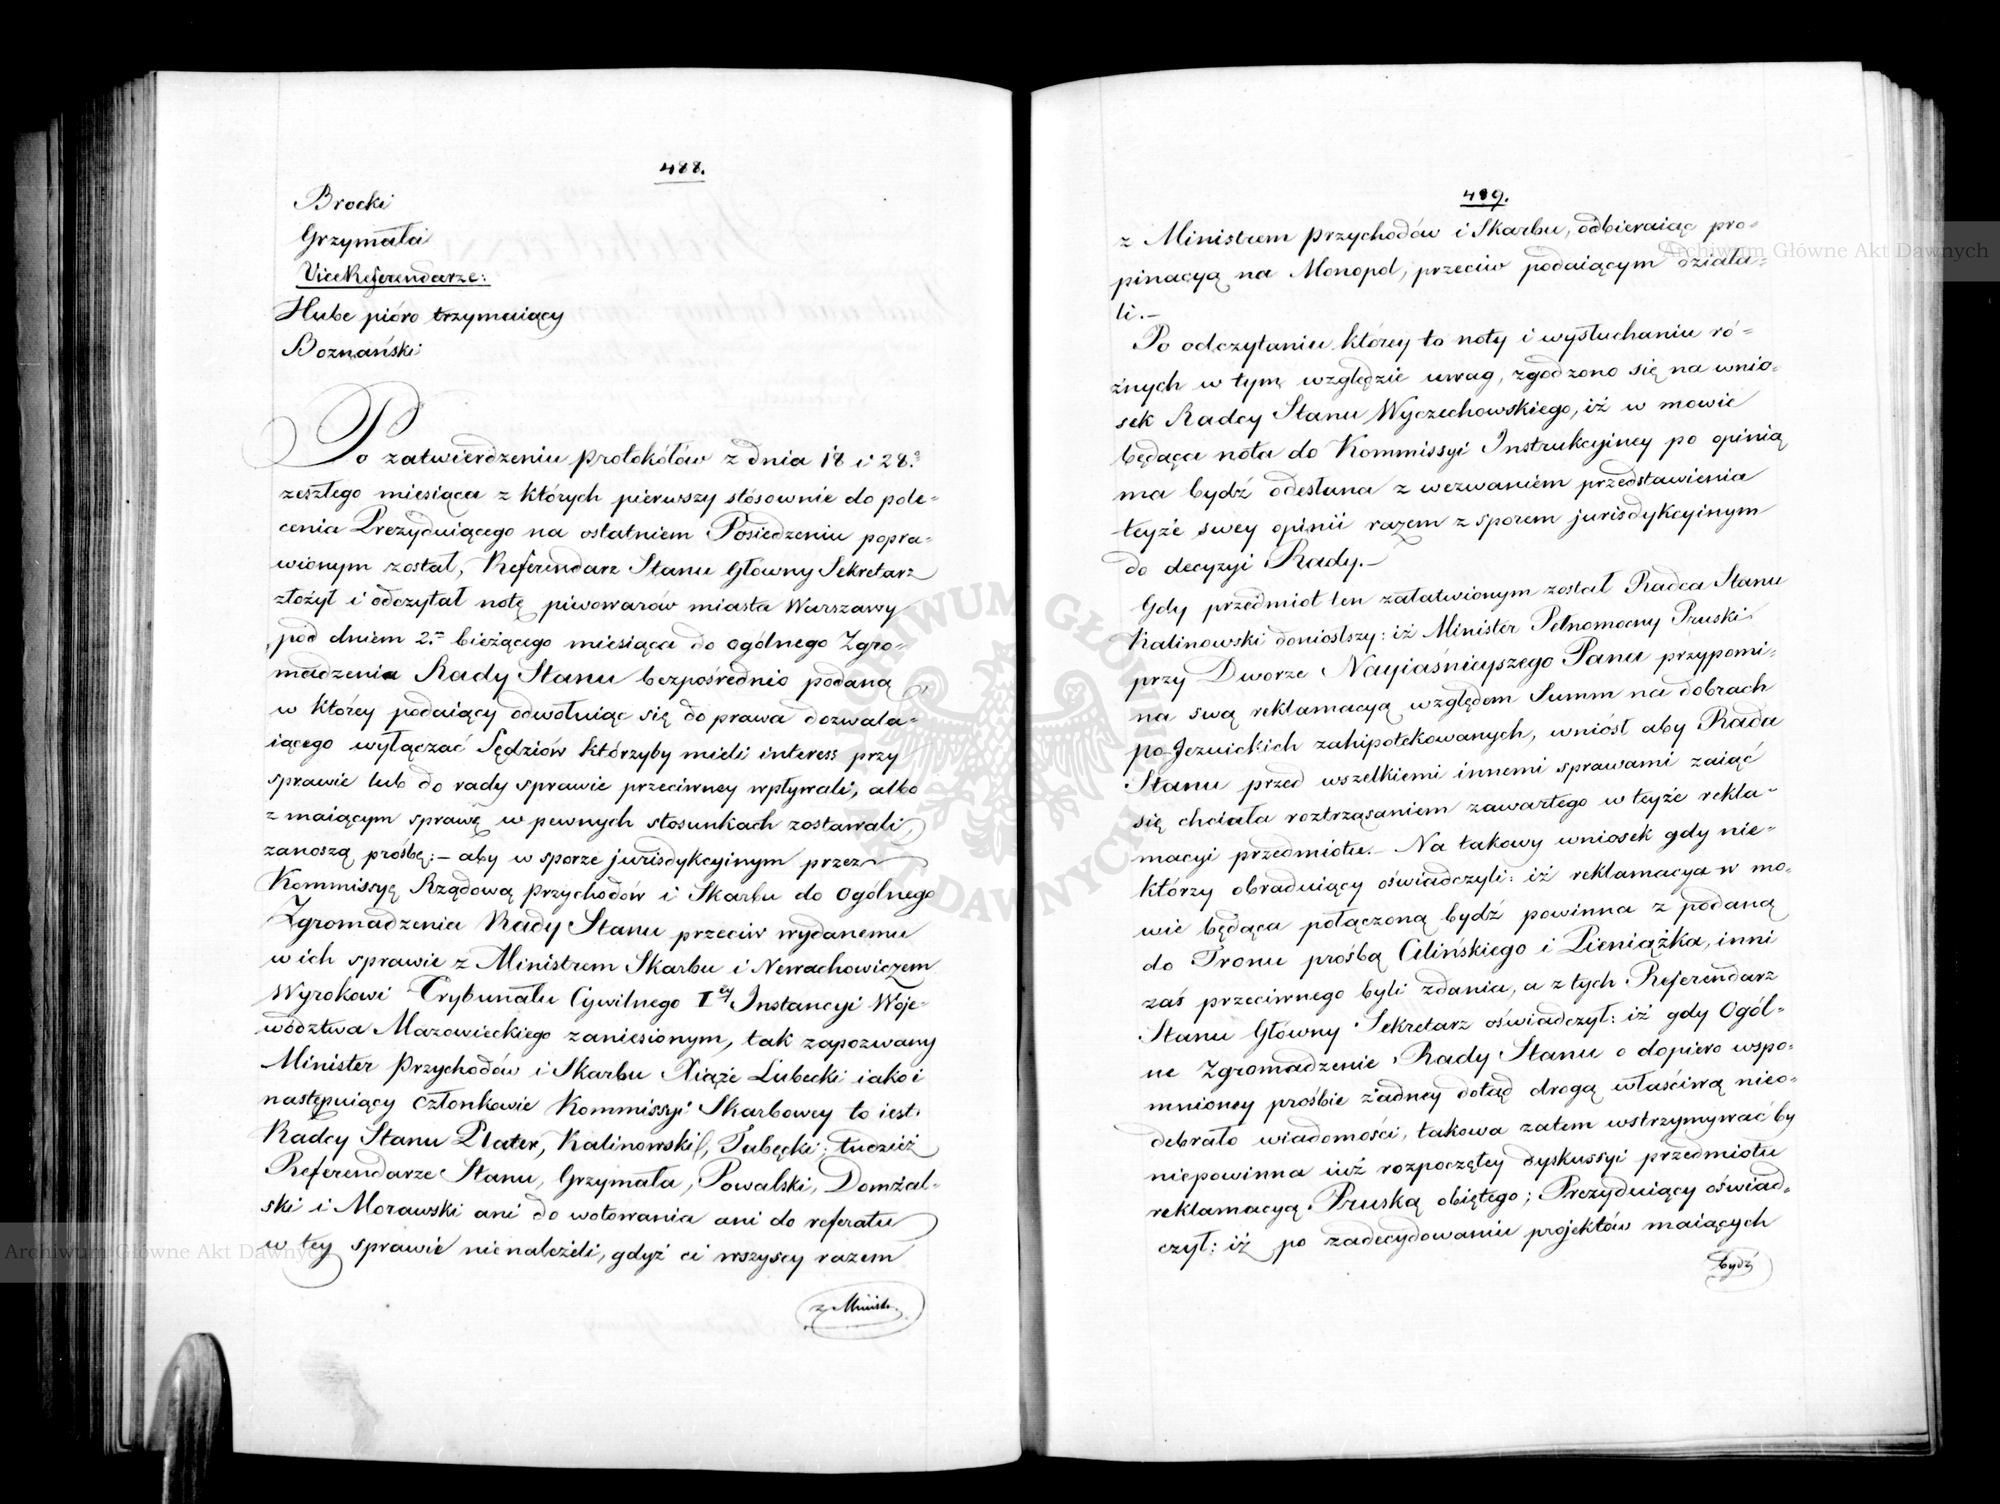 488.
Brocki
Grzymała
ViceReferendarze:
Hube pióro trzymaiący
Boznański
Po zatwierdzeniu protokółów z dnia 18 i 28.º
zeszłego miesiąca z których pierwszy stósownie do pole-
cenia Prezyduiącego na ostatniem Posiedzeniu popra-
wionym został, Referendarz Stanu Główny Sekretarz
złożył i odczytał notę piwowarów miasta Warszawy
pod dniem 2.º bieżącego miesiąca do ogólnego Zgro-
madzenia Rady Stanu bezpośrednio podaną,
w którey podaiący odwołuiąc się do prawa dozwala-
iącego wyłączać Sędziów którzyby mieli interess przy
sprawie lub do rady sprawie przeciwney wpływali, albo
z maiącym sprawę w pewnych stosunkach zostawali,
zanoszą prośbę:- aby w sporze jurisdykcyinym przez
Kommissyę Rządową Przychodów i Skarbu do Ogólnego
Zgromadzenia Rady Stanu przeciw wydanemu
w ich sprawie z Ministrem Skarbu i Newachowiczem
Wyrokowi Trybunału Cywilnego I ey Instancyi Woje-
wództwa Mazowieckiego zaniesionym, tak zapozwany
Minister Przychodów i Skarbu Xiąże Lubecki iako i
następuiący Członkowie Kommissyi Skarbowey to iest:
Radcy Stanu Plater, Kalinowski, Tubęcki; tudzież
Referendarze Stanu, Grzymała, Powalski, Domżal-
ski i Morawski ani do wotowania ani do referatu
w tey sprawie nienależeli, gdyż ci wszyscy razem
z Minist.
489.
z Ministrem Przychodów i Skarbu, odbieraiąc pro-
pinacyą na Monopol, przeciw podaiącym działa-
li.-
Po odczytaniu którey to noty i wysłuchaniu ró-
żnych w tym względzie uwag, zgodzono się na wnio-
sek Radcy Stanu Wyczechowskiego, iż w mowie
będąca nota do Kommissyi Instrukcyiney po opinią
ma bydź odesłana z wezwaniem przedstawienia
teyże swey opinii razem z sporem jurisdykcyinym
do decyzyi Rady.-
Gdy przedmiot ten załatwionym został Radca Stanu
Kalinowski doniosłszy: iż Minister Pełnomocny Pruski
przy Dworze Nayiaśnieyszego Pana przypomi-
na swą reklamacyą względem Summ na dobrach
po-Jezuickich zahipotekowanych, wniósł aby Rada
Stanu przed wszelkiemi innemi sprawami zaiąć
się chciała roztrząsaniem zawartego w teyże rekla-
macyi przedmiotu.- Na takowy wniosek gdy nie-
którzy obraduiący oświadczyli: iż reklamacya w mo-
wie będąca połączoną bydź powinna z podaną
do Tronu prośbą Cilińskiego i Pieniążka, inni
zaś przeciwnego byli zdania, a z tych Referendarz
Stanu Główny Sekretarz oświadczył: iż gdy Ogól-
ne Zgromadzenie Rady Stanu o dopiero wspo-
mnioney prośbie żadney dotąd drogą właściwą nieo-
debrało wiadomości, takowa zatem wstrzymywać by
niepowinna iuż rozpoczętey dyskussyi przedmiotu
reklamacyą Pruską obiętego; Prezyduiący oświad-
czył: iż po zadecydowaniu projektów maiących
bydź
Archiwum Główne Akt Dawnych
Archiwum Główne Akt Dawnych
ARCHIWUM GŁÓWNE AKT DAWNYCH